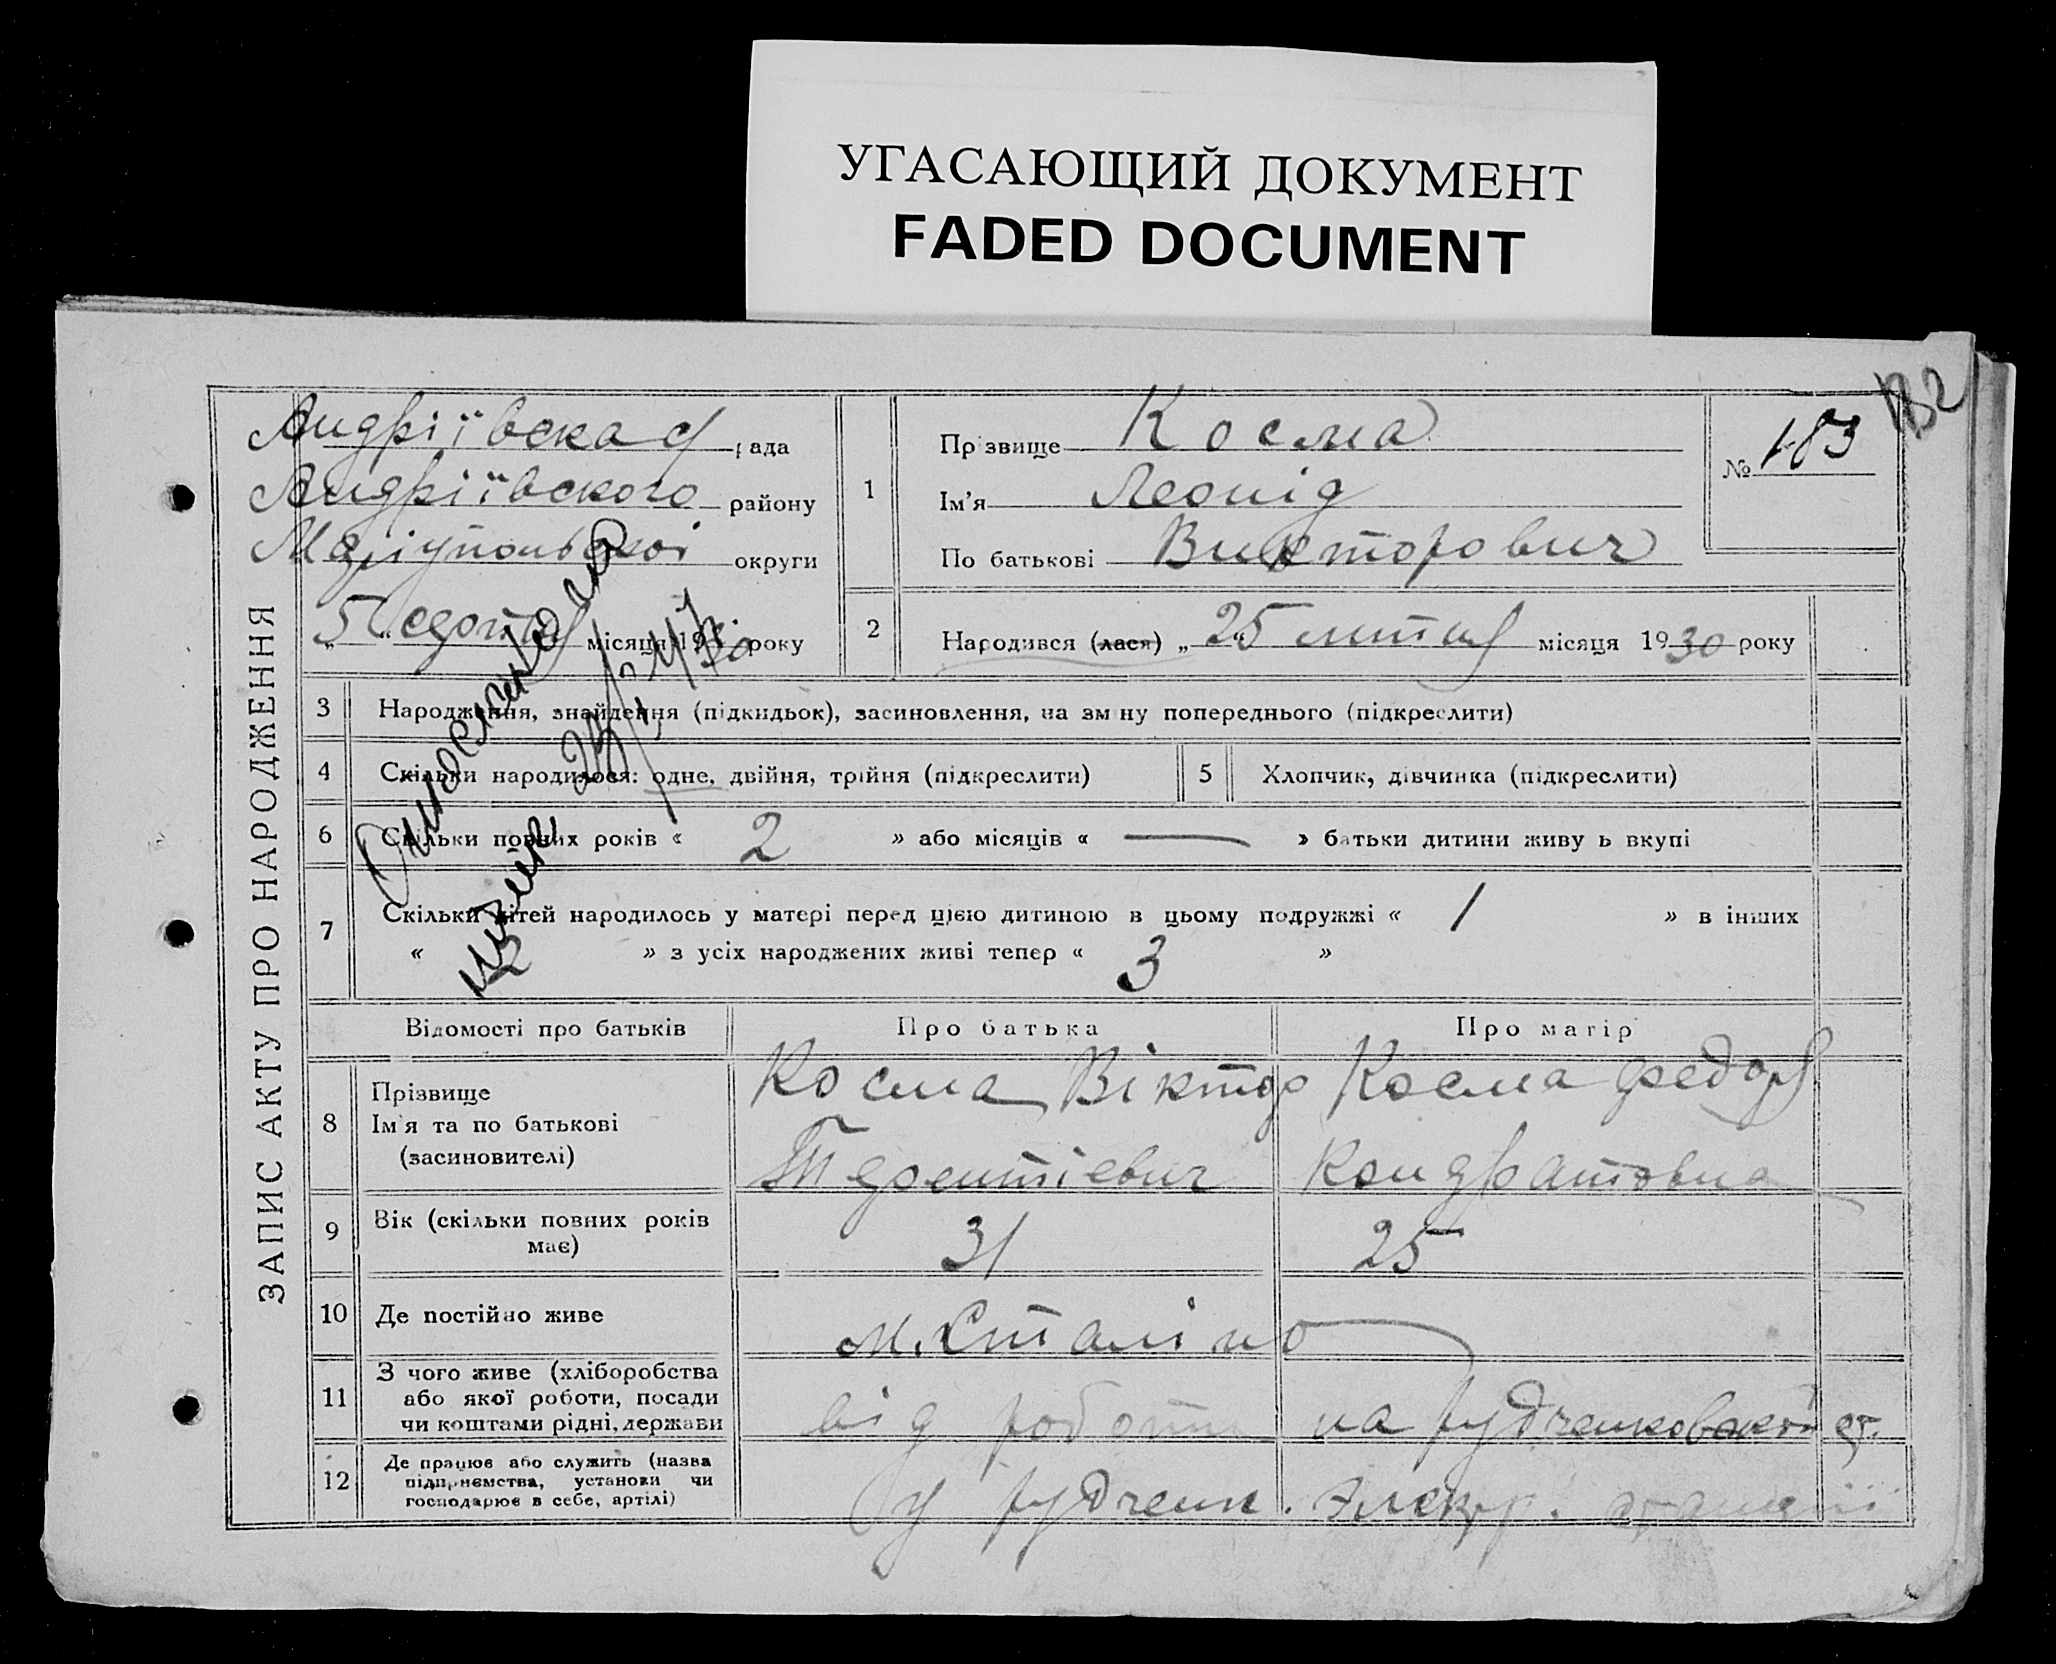 УГАСАЮЩИЙ ДОКУМЕНТ
FADED DOCUMENT
132
ЗАПИС АКТУ ПРО НАРОДЖЕННЯ
Андріївская рада
Андріївского району
Маріупольскоі округи
„5“ місяця 1930 року
1
Прізвище Косма
Ім'я Леонід
По батькові Викторович
№ 183
2 Народився (лася) „25“ місяця 1930 року
3 Народження, знайдення (підкидьок), засиновлення, на зміну попереднього (підкреслити)
4 Скільки народилося: одне, двійня, трійня (підкреслити)
5 Хлопчик, дівчинка (підкреслити)
6 Скільки повних років « 2 » або місяців « — » батьки дитини живуть вкупі
7 Скільки дітей народилось у матері перед цією дитиною в цьому подружжі « 1 » в інших
« » з усіх народжених живі тепер « 3 »
Відомості про батьків Про батька Про матір
8 Прізвище
Ім'я та по батькові
(засиновителі)
Косма Віктор
Терентіевич
Косма Федор
Кондратовна
9 Вік (скільки повних років
має)
31 25
10 Де постійно живе м. Сталіно
11 З чого живе (хліборобства
або якої роботи, посади
чи коштами рідні, держави
від роботи на Рудченковскій ст.
12 Де працює або служить (назва
підприємства, установи чи
господарює в себе, артілі)
у Рудченк. Электр. станціі